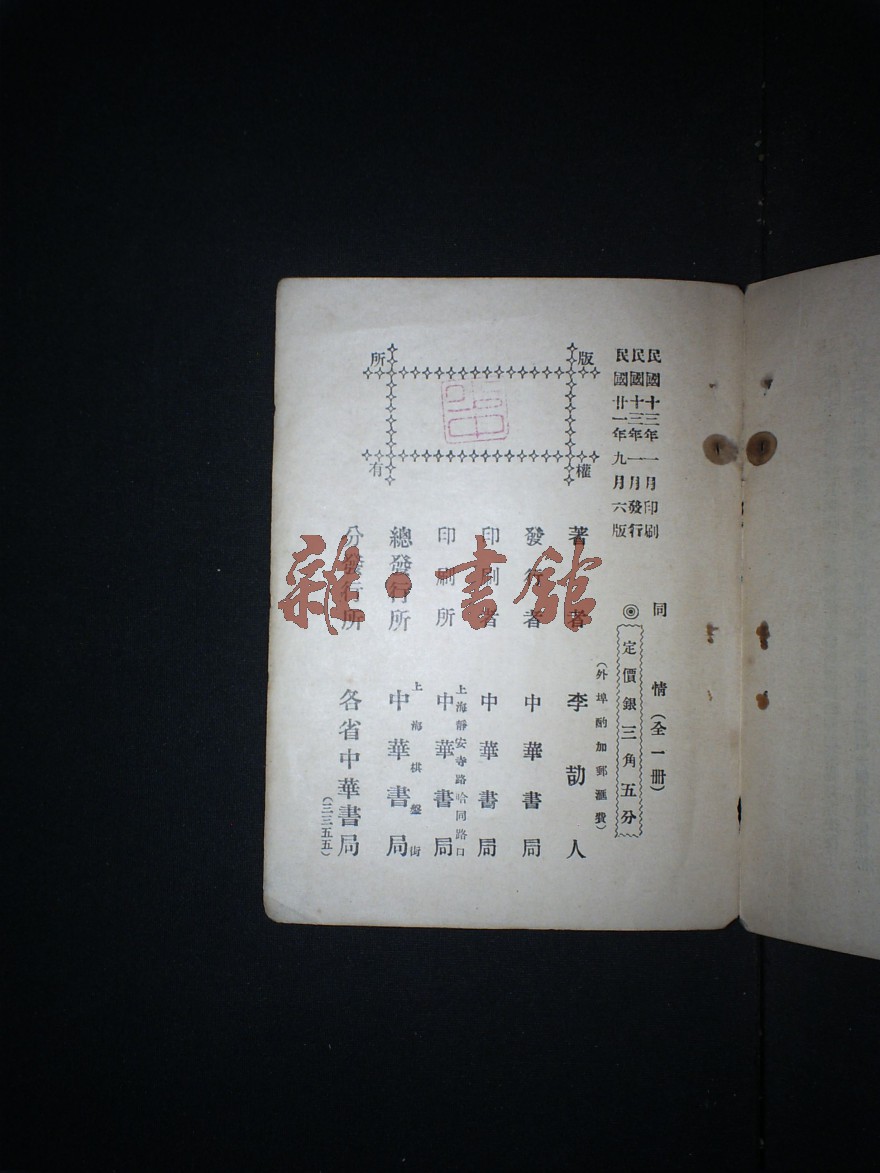 民國十三年一月印刷
民國十三年一月發行
民國廿一年九月六版
同情（全一册）
◎定價銀三角五分
（外埠酌加郵滙費）
版權所有
著者 李劼人
發行者 中華書局
印刷者 中華書局
上海靜安寺路哈同路口
印刷所 中華書局
上海棋盤街
總發行所 中華書局
分發行所 各省中華書局
（三三五五）
雜·書館